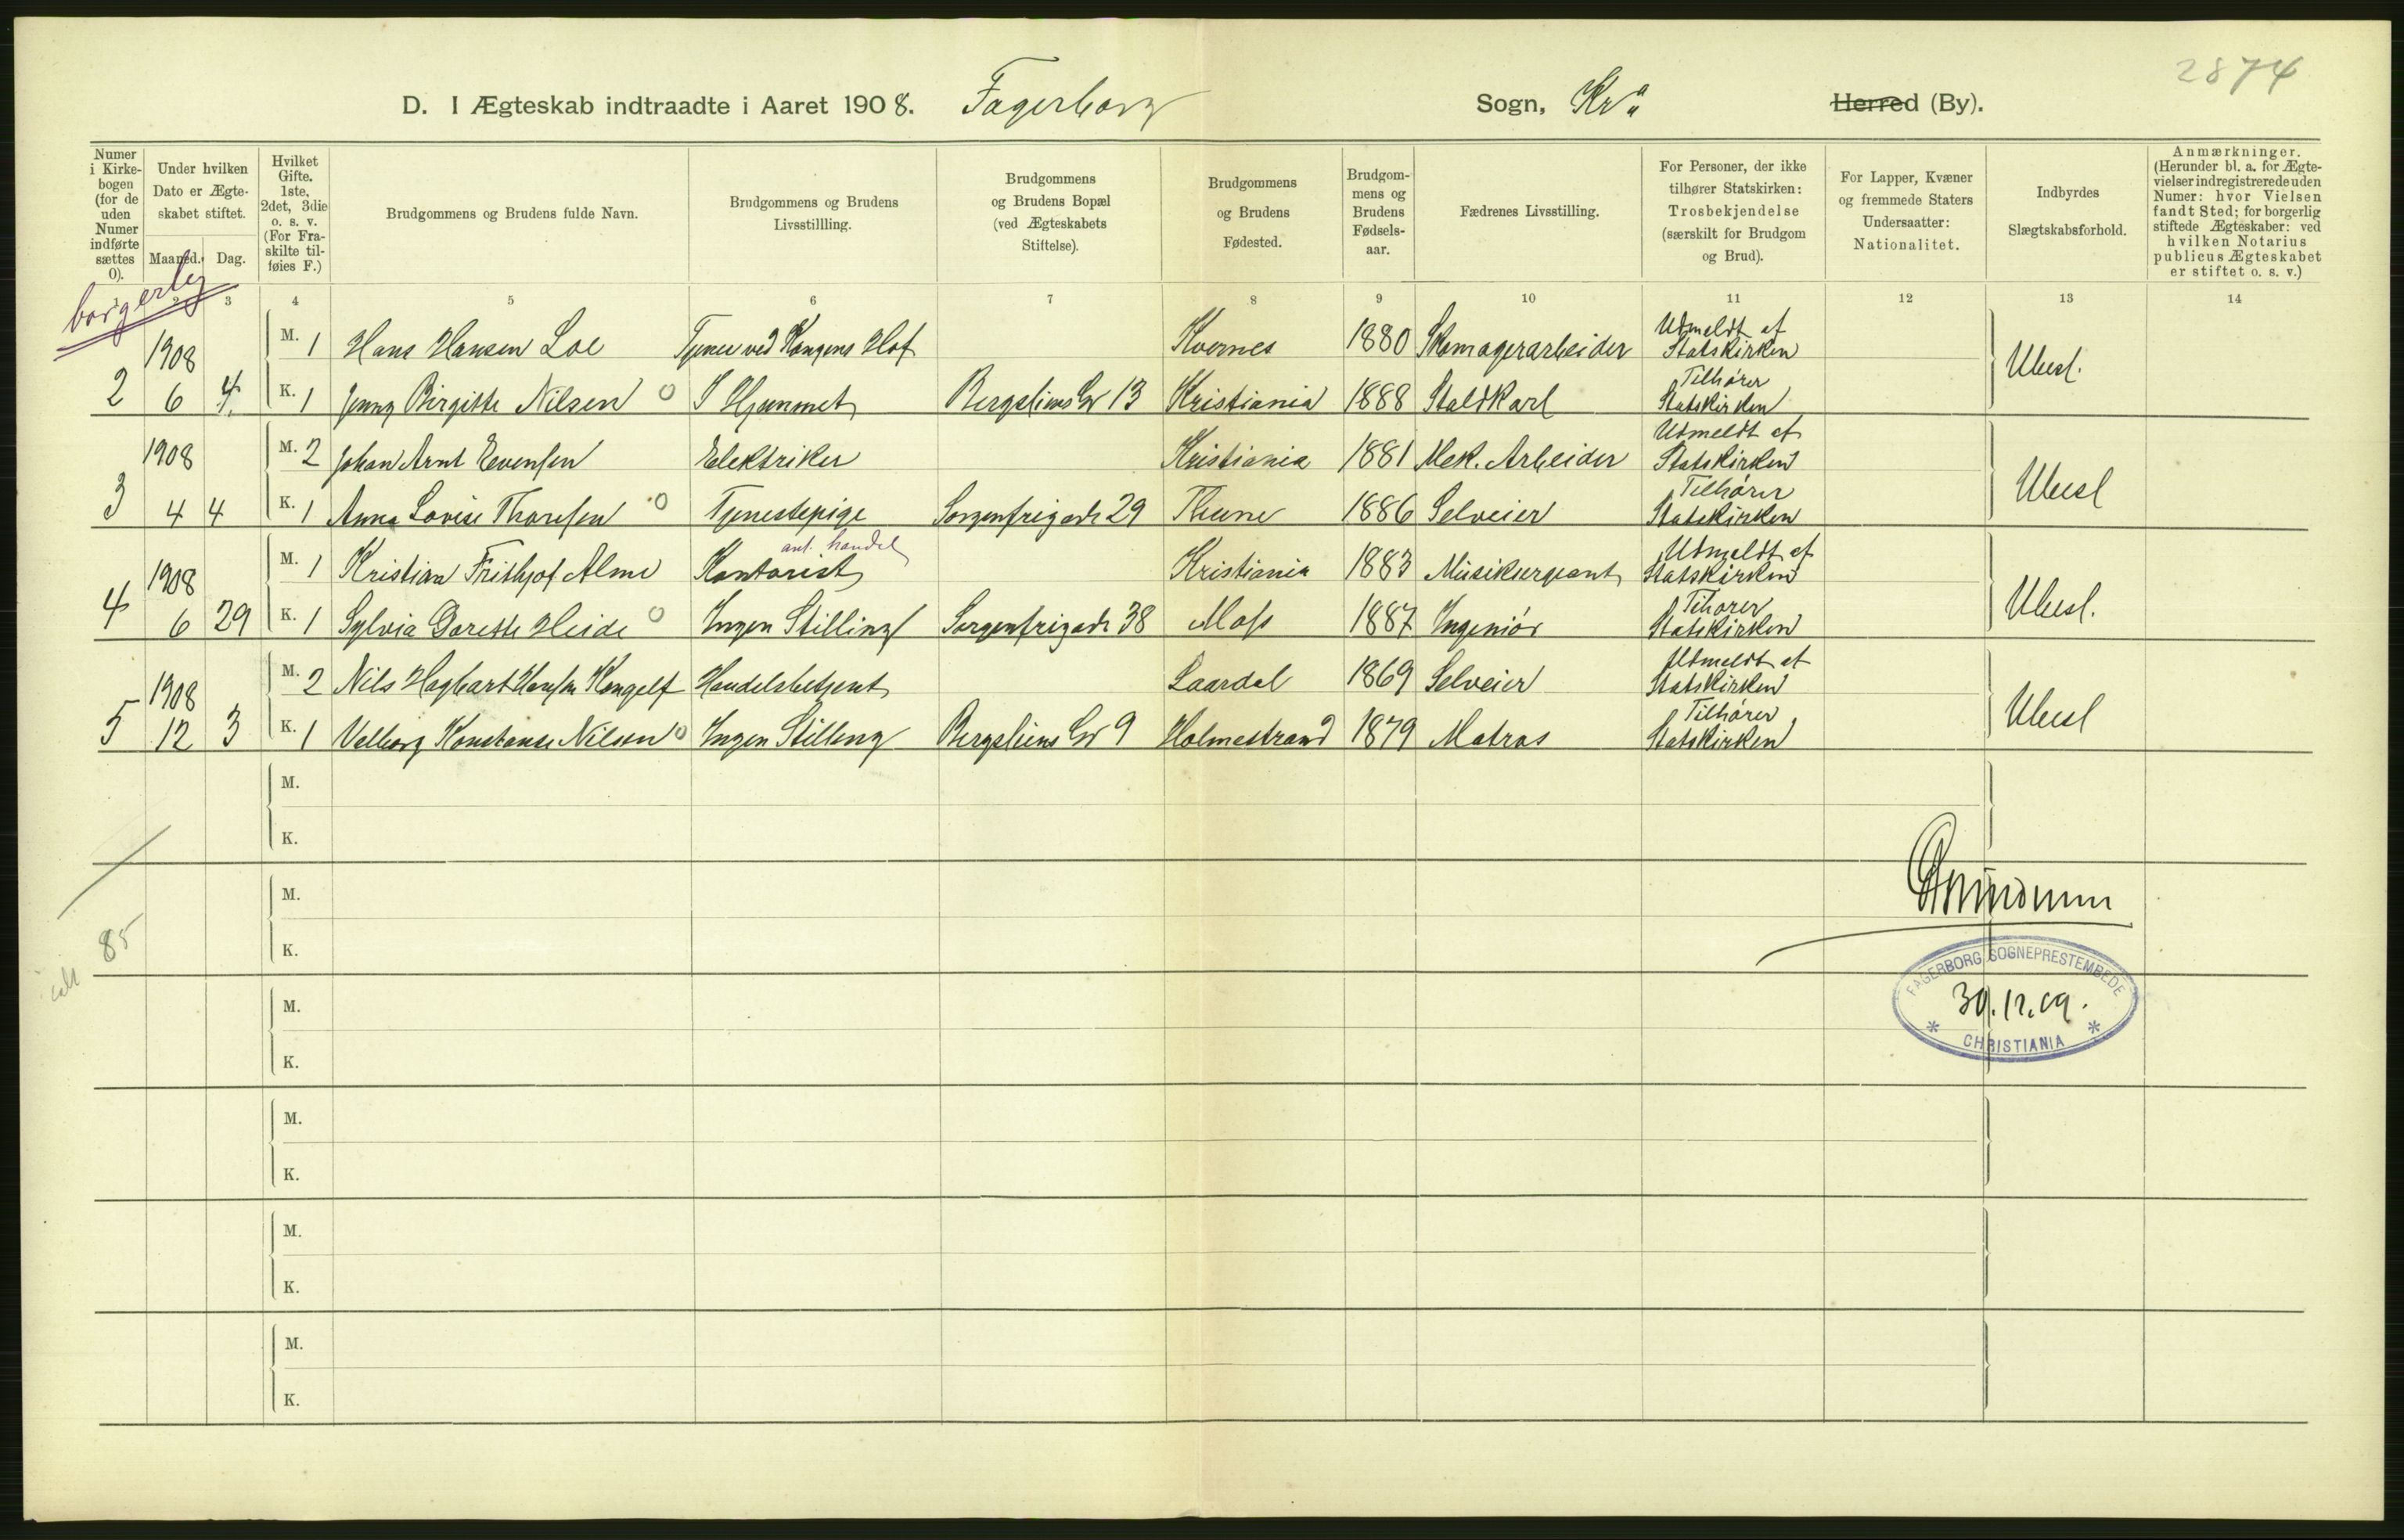 2874
D. I Ægteskab indtraadte i Aaret 1908. Fagerborg Sogn, Kra Herred (By).
Numer i Kirkebogen (for de uden Numer indførte sættes 0).
Under hvilken Dato er Ægteskabet stiftet.
Maaned. Dag.
Hvilket Gifte. 1ste, 2det, 3die o. s. v. (For Fraskilte tilføies F.)
Brudgommens og Brudens fulde Navn.
Brudgommens og Brudens Livsstillling.
Brudgommens og Brudens Bopæl (ved Ægteskabets Stiftelse).
Brudgommens og Brudens Fødested.
Brudgommens og Brudens Fødselsaar.
Fædrenes Livsstilling.
For Personer, der ikke tilhører Statskirken: Trosbekjendelse (særskilt for Brudgom og Brud).
For Lapper, Kvæner og fremmede Staters Undersaatter: Nationalitet.
Indbyrdes Slægtskabsforhold.
Anmærkninger. (Herunder bl. a. for Ægtevielser indregistrerede uden Numer: hvor Vielsen fandt Sted; for borgerlig stiftede Ægteskaber: ved hvilken Notarius publicus Ægteskabet er stiftet o. s. v.)
borgerlig
1 2 3 4 5 6 7 8 9 10 11 12 13 14
1908 M. 1 Hans Hansen Loe Tjener ved Kongens Hof Kvernes 1880 Skomagerarbeider Udmeldt af Statskirken
2 6 4. K. 1 Jenny Birgitte Nilsen o I Hjemmet Bergsliens Gd 13 Kristiania 1888 Staldkarl Tilhører Statskirken Ubesl.
1908 M. 2 Johan Arnt Evensen Elektriker Kristiania 1881 Mek. Arbeider Udmeldt af Statskirken
3 4 4 K. 1 Anna Lovise Thoresen o Tjenestepige Sorgenfrigade 29 1886 Selveier Tilhører Statskirken Ubesl
ant. handel
1908 M. 1 Kristian Frithjof Alme Kontorist Kristiania 1883 Musiksergeant Udmeldt af Statskirken
4 6 29 K. 1 Sylvia Dorette Heide o Ingen Stilling Sorgenfrigade 38 Moss 1887 Ingeniør Tihører Statskirken Ubesl.
1908 M. 2 Nils Hagbart Hansen Kongelf Handelsbetjent Laardal 1869 Selveier Udmeldt af Statskirken
5 12 3 K. 1 Valborg Konstanse Nilsen o Ingen Stilling Bergsliens Gd 9 Holmestrand 1879 Matros Tilhører Statskirken Ubesl
M.
K.
M.
K.
85
FAGERBORG SOGNEPRESTEMBEDE
30.12.09.
CHRISTIANIA
M.
K.
M.
K.
M.
K.
M.
K.